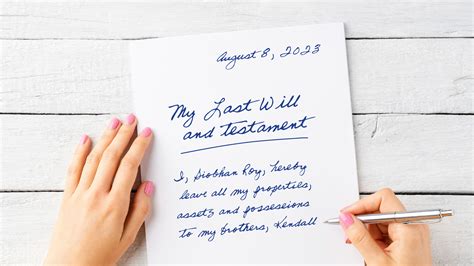 August 8, 2023
My Last Will
and testament
I, Siobhan Roy, hereby
leave all my properties,
assets and possesions
to my brothers, Kendall